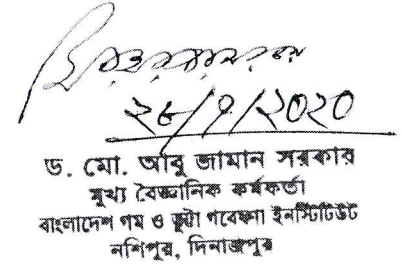 ২৮/৭/২০২০
ড. মো. আবু জামান সরকার
মুখ্য বৈজ্ঞানিক কর্মকর্তা
বাংলাদেশ গম ও ভুট্টা গবেষণা ইনস্টিটিউট
নশিপুর, দিনাজপুর